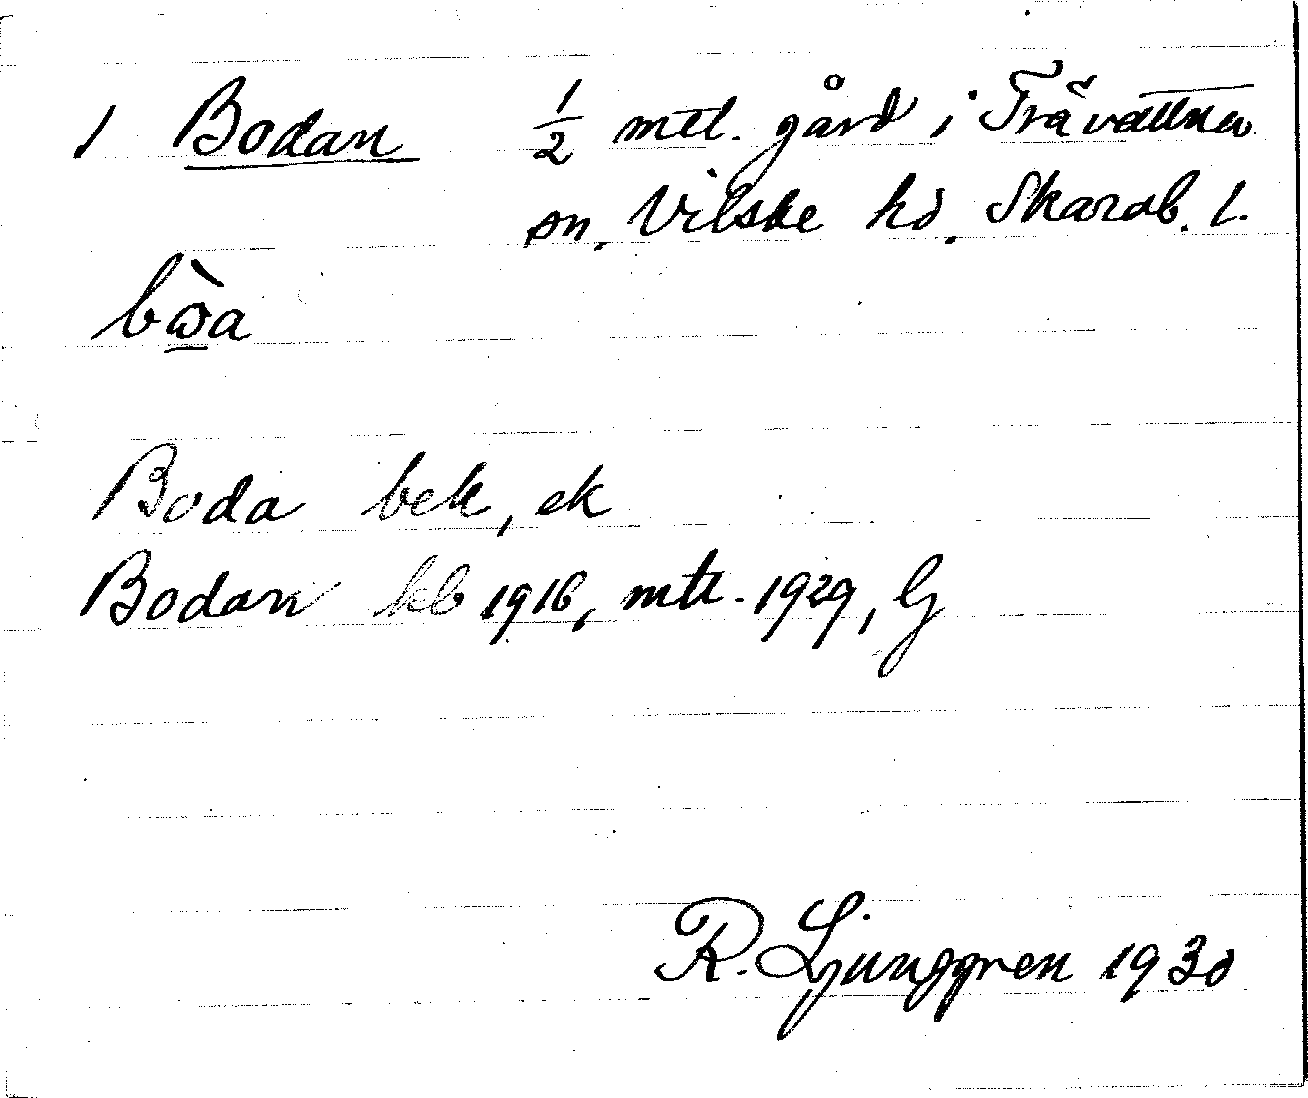 1 Bodan 1/2 mtl. gård i Trävattna
sn. Vilske hd. Skarab. l.
bὼ̲a
Boda bek, ek
Bodan kb 1916, mtl. 1929, G
R. Ljunggren 1930